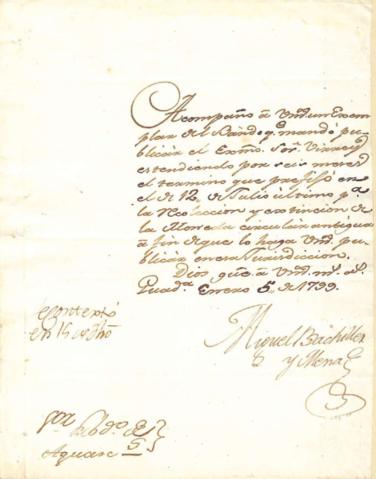 Acompaño à Vmd. un Exem-
plar del Bando q.e mandó pu-
blicar el Exmo. Sor. Virrey
estendiendo por seis meses
el termino que prefijó en
el de 12 de Julio ultimo p.a
la Recoleccion y extincion de
la Moneda circular antigua
à fin de que lo haga Vmd. pu-
blicar en esa Jurisdiccion.
Dios gũe. à Vmd. m.s a.s
Guad.a Enero 5 de 1799.
Miguel Bachiller
y Mena
se contextó
en 15 de dho
Sor. Subdo. de
Aguasc.